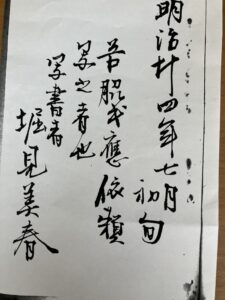 明治廾四年七月
初旬
應依頼
写之者也
写書者
堀見美春